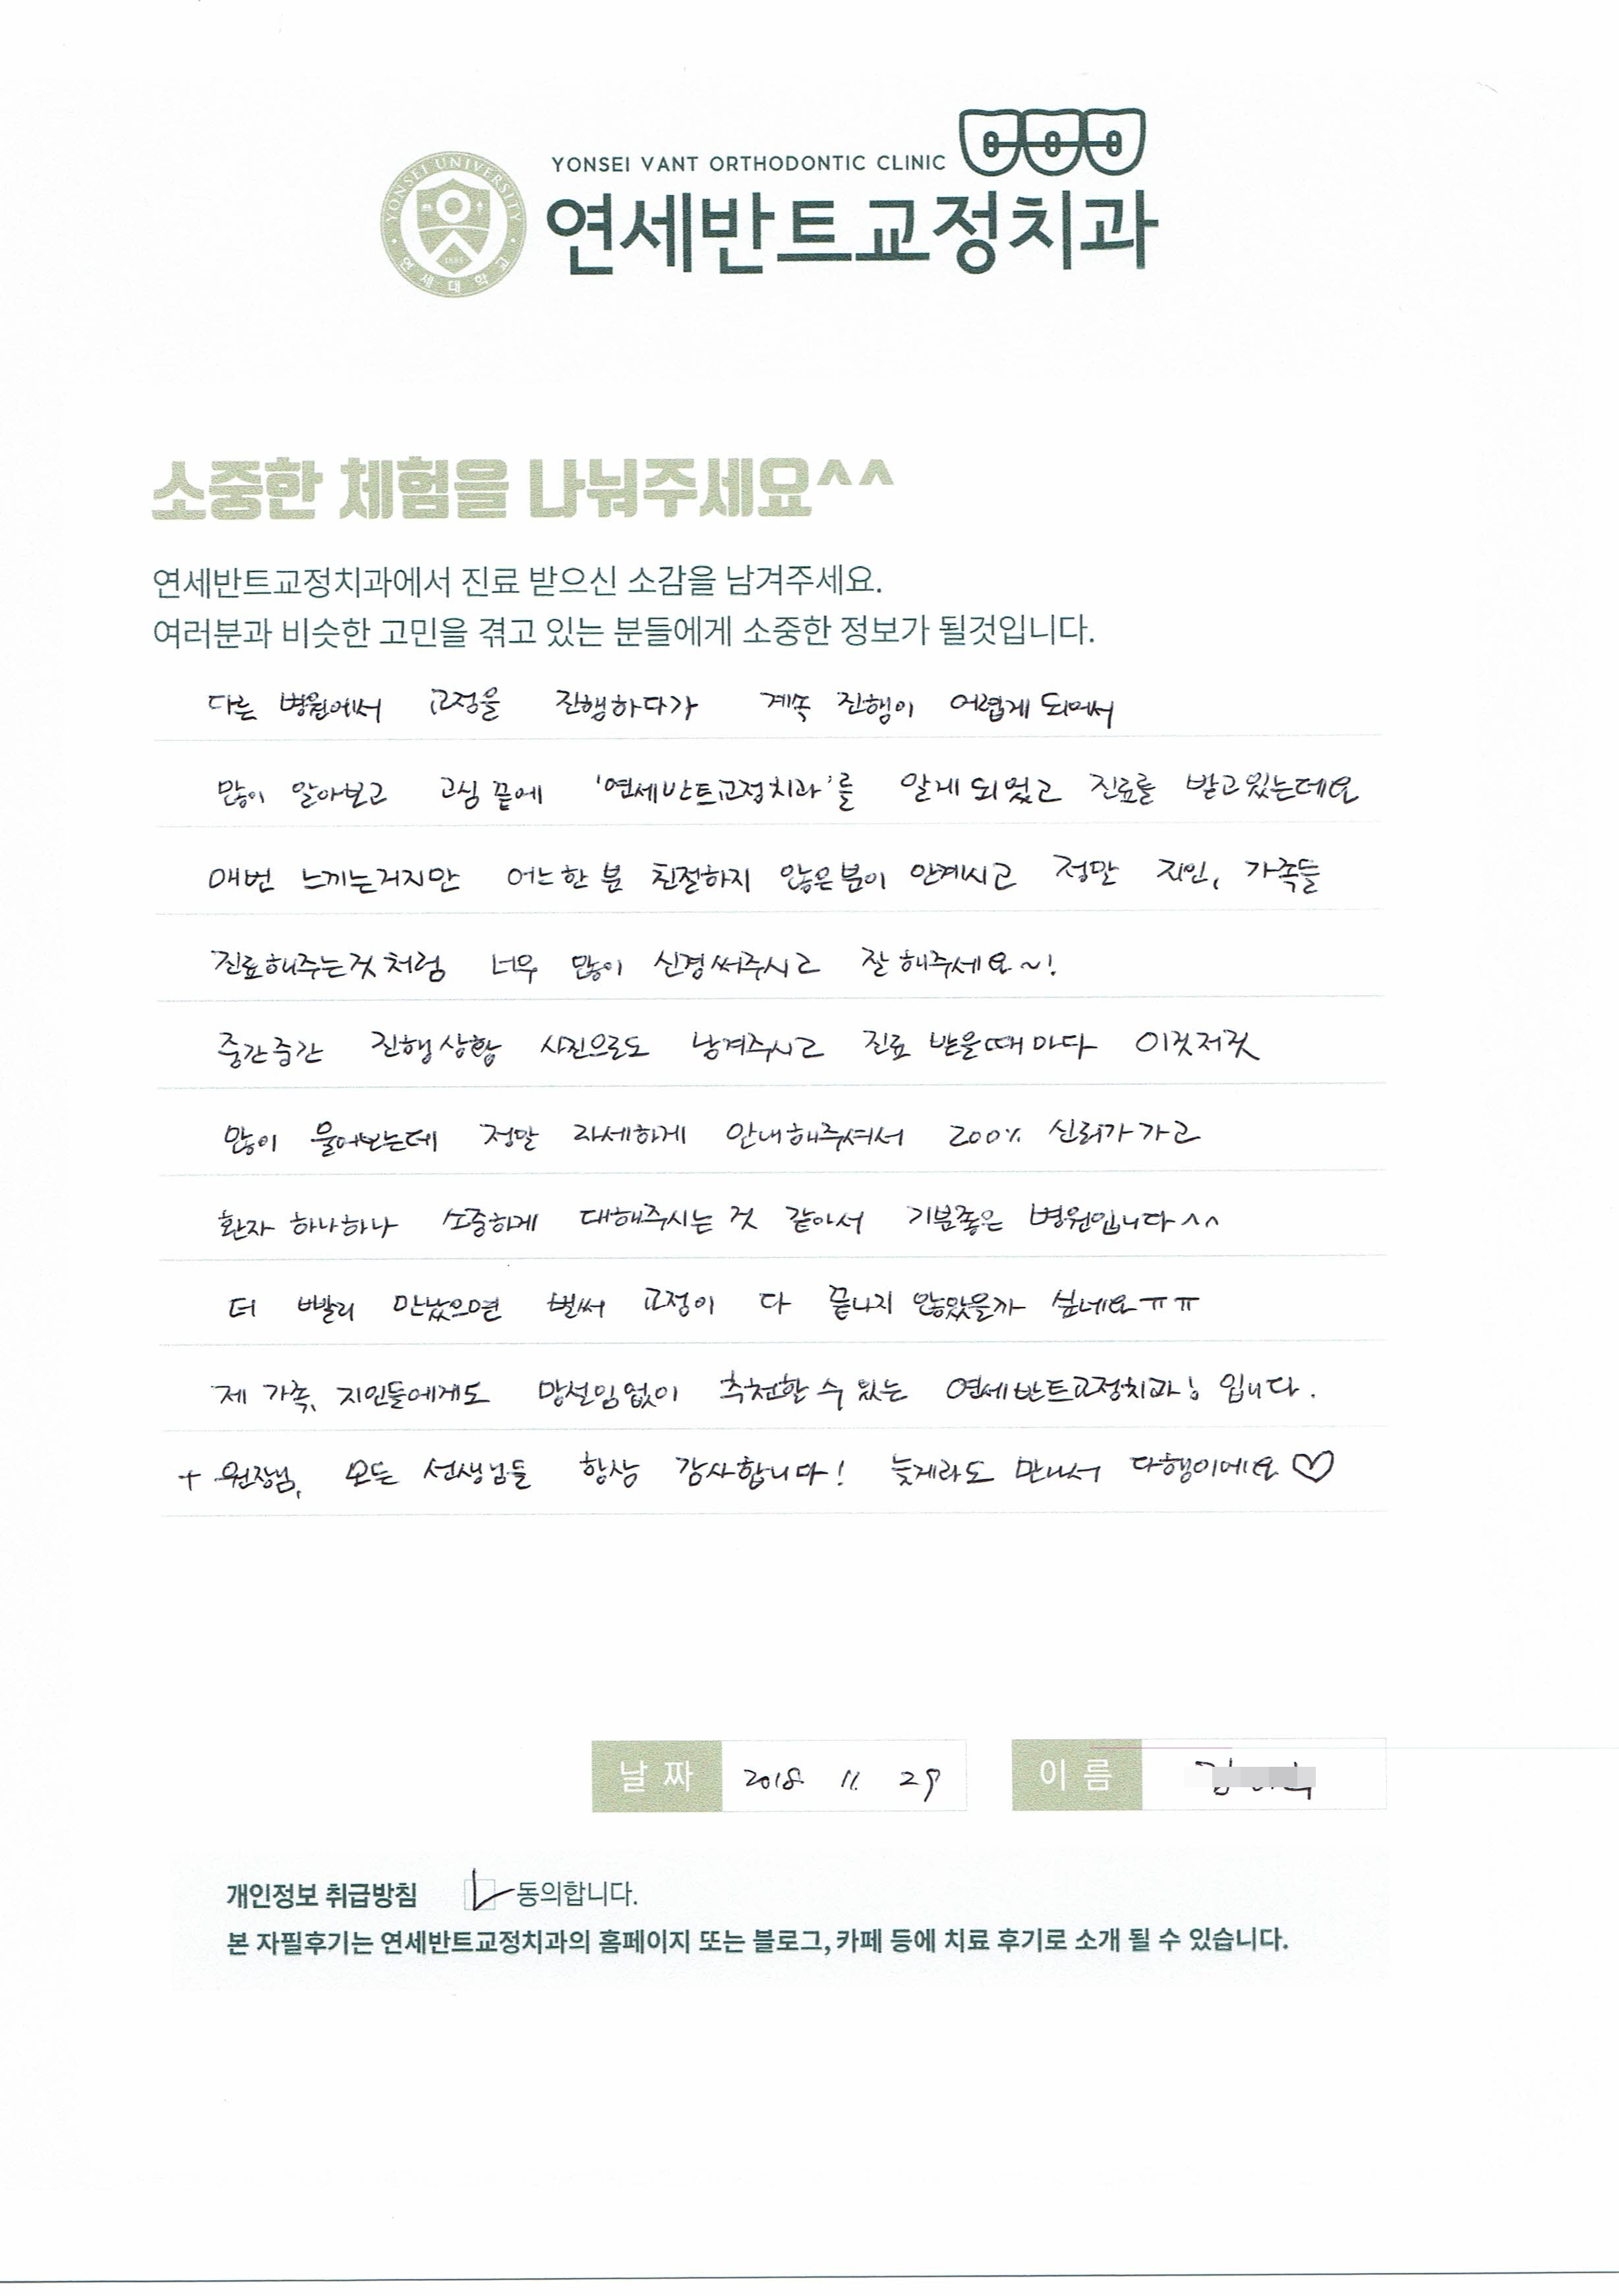 YONSEI VANT ORTHODONTIC CLINIC
연세반트교정치과
YONSEI UNIVERSITY
1885
연세대학교
소중한 체험을 나눠주세요^^
연세반트교정치과에서 진료 받으신 소감을 남겨주세요.
여러분과 비슷한 고민을 겪고 있는 분들에게 소중한 정보가 될것입니다.
다른 병원에서 교정을 진행하다가 계속 진행이 어렵게 되어서
많이 알아보고 고심 끝에 '연세반트교정치과'를 알게 되었고 진료를 받고있는데요
매번 느끼는거지만 어느한분 친절하지 않은분이 안계시고 정말 지인, 가족들
진료해주는것처럼 너무 많이 신경써주시고 잘 해주세요~!
중간중간 진행상황 사진으로도 남겨주시고 진료 받을때마다 이것저것
많이 물어보는데 정말 자세하게 안내해주셔서 200% 신뢰가가고
환자 하나하나 소중하게 대해주시는 것 같아서 기분좋은 병원입니다^^
더 빨리 만났으면 벌써 교정이 다 끝나지 않았을까 싶네요ㅠㅠ
제 가족, 지인들에게도 망설임없이 추천할 수 있는 연세반트교정치과! 입니다.
+ 원장님, 모든 선생님들 항상 감사합니다! 늦게라도 만나서 다행이에요♡
날짜 2018. 11. 29 이름 김
개인정보 취급방침 동의합니다.
본 자필후기는 연세반트교정치과의 홈페이지 또는 블로그, 카페 등에 치료 후기로 소개 될 수 있습니다.